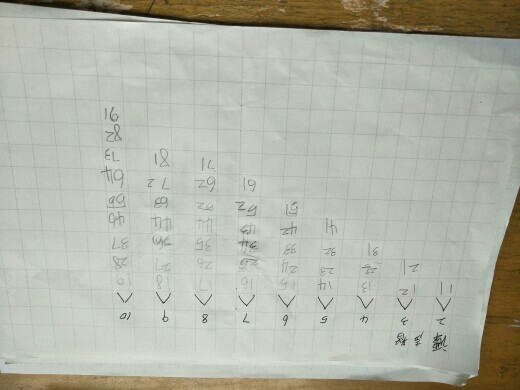 2 3 4 5 6 7 8 9 10
11 12 13 14 15 16 17 18 19
21 22 23 24 25 26 27 28
31 32 33 34 35 36 37
41 42 43 44 44 46
51 52 52 63 55
61 62 72 64
71 81 73
82
91